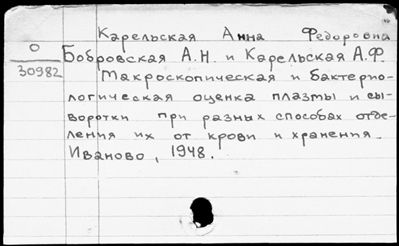 Карельская Анна Федоровна
О
30982
Бобровская А.Н. и Карельская А.Ф.
Макроскопическая и бактерио-
логическая оценка плазмы и сы-
воротки при разных способах отде-
ления их от крови и хранения.
Иваново, 1948.